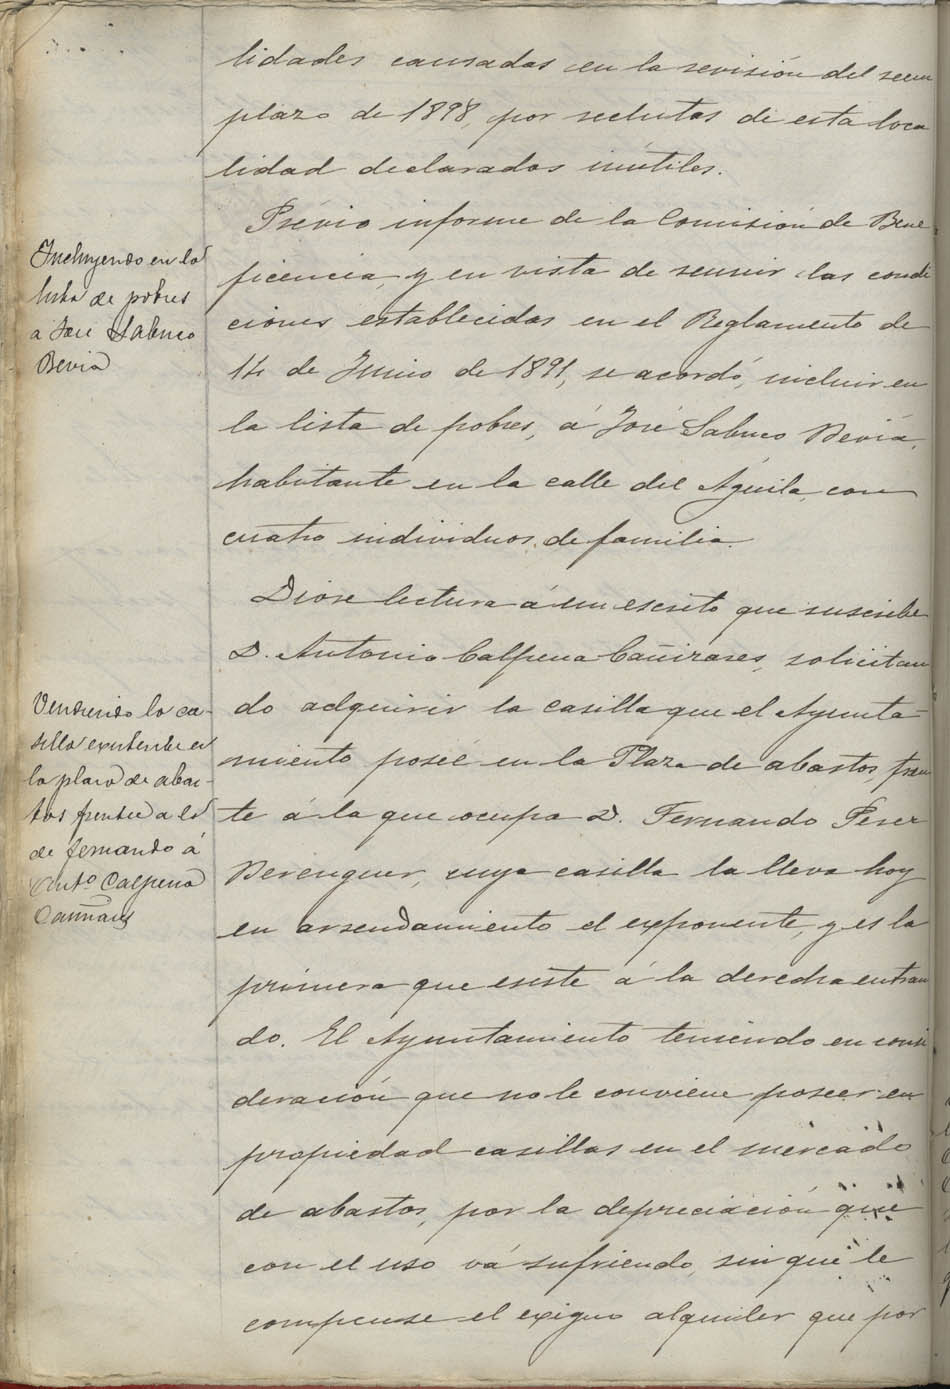 lidades causadas en la revisión del reem
plazo de 1898, por reclutas de esta loca
lidad declarados inútiles.
Incluyendo en la
lista de pobres
a José Sabuco
Beviá
Prévio informe de la Comisión de Bene
ficencia, y en vista de reunir las condi
ciones establecidas en el Reglamento de
14 de Junio de 1891, se acordó, incluir en
la lista de pobres, á José Sabuco Beviá,
habitante en la calle del Aguila, con
cuatro individuos de familia.
Diose lectura á un escrito que suscribe
D. Antonio Calpena Cañizares, solicitan
Vendiendo la ca-
silla existente en
la plaza de abas-
tos frente a la
de fernando á
Antº Calpena
Cañizares
do adquirir la casilla que el Ayunta-
miento poseé en la Plaza de abastos, fren
te á la que ocupa D. Fernando Perez
Berenguer, cuya casilla la lleva hoy
en arrendamiento el exponente, y es la
primera que esiste á la derecha entran
do. El Ayuntamiento teniendo en consi
deración que no le conviene poseer en
propiedad casillas en el mercado
de abastos, por la depreciación que
con el uso vá sufriendo, sin que le
compense el exiguo alquiler que por